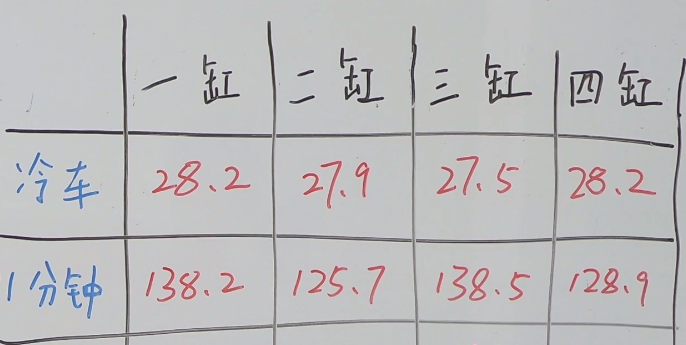 一缸 二缸 三缸 四缸
冷车 28.2 27.9 27.5 28.2
1分钟 138.2 125.7 138.5 128.9